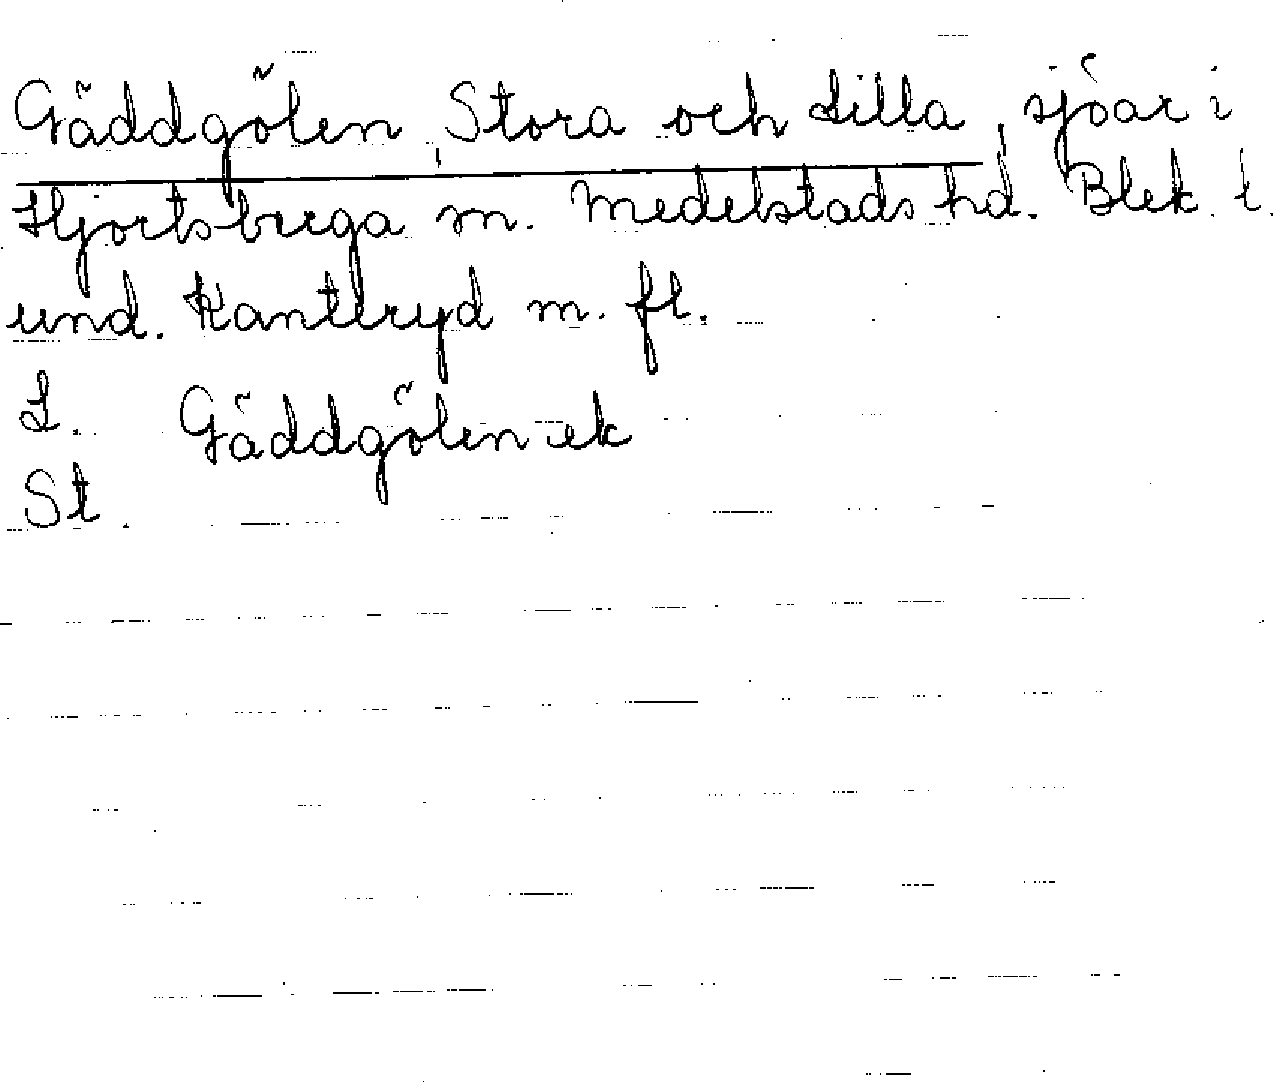 Gäddgölen, Stora och Lilla, sjöar i
Hjortsberga sn. Medelstads hd. Blek. l.
und. Kantleryd m. fl.
L. Gäddgölen ek
St.